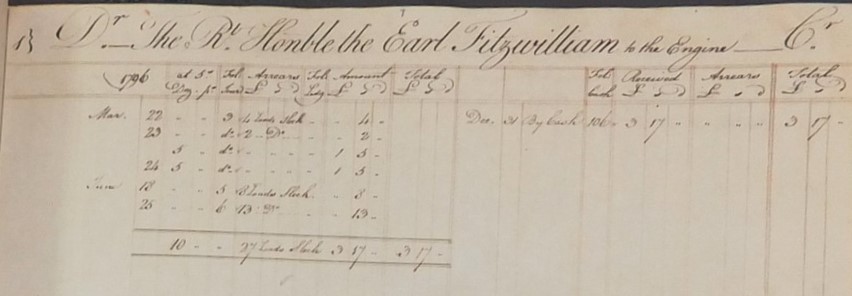 13 Dr. The Rt. Honble the Earl Fitzwilliam to the Engine Cr.
1796 at 5s Fol. Arrears £ s d Fol. Amount £ s d Total £ s d Fol. Cash Received £ s d Arrears £ s d Total £ s d
Mar. 22 " " 3 4 Loads Sleck " " 4 " Dec. 31 By Cash 106 3 17 " " " " 3 17 "
23 " " do 2 Do " 2 "
5 " do " 1 5 "
24 5 " do " 1 5 "
June 18 " " 5 8 Loads Sleck " 8 "
25 " " 6 13 Do " 13 "
10 " " 27 Loads Sleck 3 17 " 3 17 "